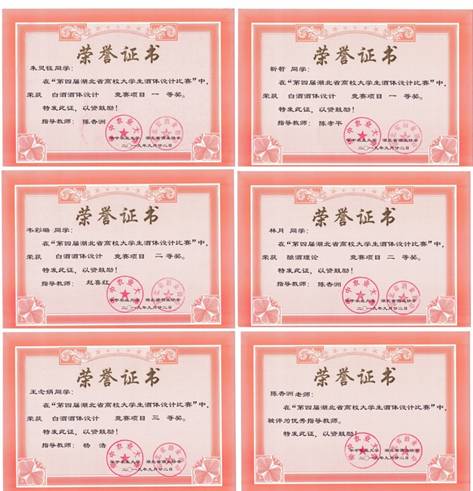 荣誉证书
同学:
在"第四届湖北省高校大学生酒体设计比赛"中,
荣获 白酒酒体设计 竞赛项目 一 等奖。
特发此证, 以资鼓励!
指导教师: 陈香洲
二〇一九年九月廿二日
荣誉证书
靳哲 同学:
在"第四届湖北省高校大学生酒体设计比赛"中,
荣获 白酒酒体设计 竞赛项目 一 等奖。
特发此证, 以资鼓励!
指导教师: 陈孝平
二〇一九年九月廿二日
荣誉证书
同学:
在"第四届湖北省高校大学生酒体设计比赛"中,
荣获 白酒酒体设计 竞赛项目 二 等奖。
特发此证, 以资鼓励!
指导教师: 赵喜红
二〇一九年九月廿二日
荣誉证书
林月 同学:
在"第四届湖北省高校大学生酒体设计比赛"中,
荣获 酿酒理论 竞赛项目 二 等奖。
特发此证, 以资鼓励!
指导教师: 陈香洲
二〇一九年九月廿二日
荣誉证书
王念炳同学:
在"第四届湖北省高校大学生酒体设计比赛"中,
荣获 白酒酒体设计 竞赛项目 三 等奖。
特发此证, 以资鼓励!
指导教师: 杨 浩
二〇一九年九月廿二日
荣誉证书
陈香洲老师:
在"第四届湖北省高校大学生酒体设计比赛"中,
被评为优秀指导教师。
特发此证, 以资鼓励!
二〇一九年九月廿二日